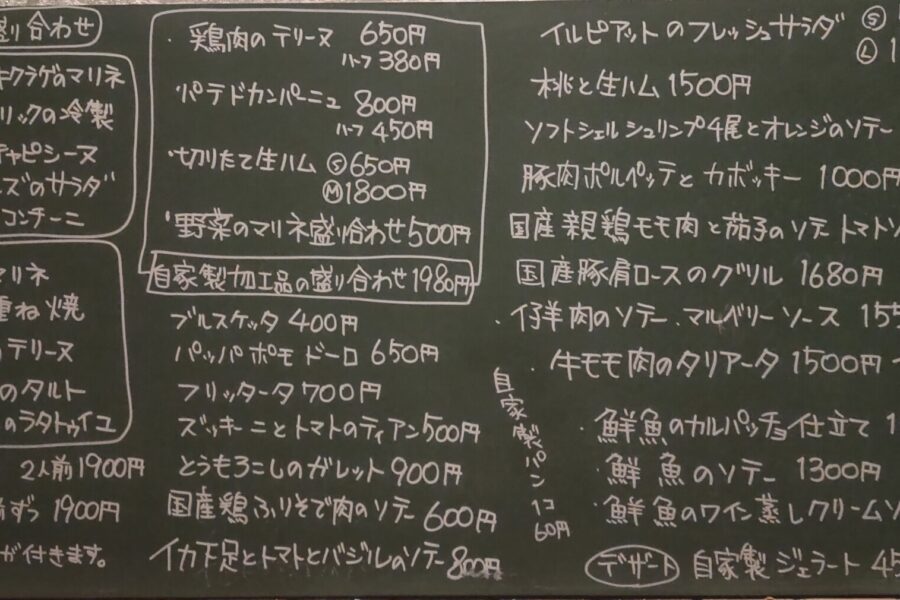 盛り合わせ
キクラゲのマリネ
リックの冷製
チャピシーヌ
ズのサラダ
コンチーニ
マリネ
重ね焼
のテリーヌ
のタルト
のラタトゥイユ
2人前 1900円
ずつ 1900円
が付きます。
・鶏肉のテリーヌ 650円
ハーフ 380円
・パテドカンパーニュ 800円
ハーフ 450円
・切りたて生ハム Ⓢ650円
Ⓜ1800円
・野菜のマリネ盛り合わせ500円
自家製加工品の盛り合わせ1980円
ブルスケッタ 400円
パッパポモドーロ 650円
フリッタータ 700円
ズッキーニとトマトのティアン500円
とうもろこしのガレット 900円
国産鶏ふりそで肉のソテー 600円
イカ下足とトマトとバジルのソテー 800円
自家製パン1コ60円
イルピアットのフレッシュサラダ Ⓢ
Ⓛ 1
桃と生ハム 1500円
ソフトシェルシュリンプ4尾とオレンジのソテー
豚肉ポルペッテとカボッキー 1000円
国産親鶏モモ肉と茄子のソテー トマトソ
国産豚肩ロースのグリル 1680円
・仔羊肉のソテー、マルベリーソース 155
牛モモ肉のタリアータ 1500円
・鮮魚のカルパッチョ仕立て 1
・鮮魚のソテー 1300円
・鮮魚のワイン蒸しクリームソ
デザート 自家製ジェラート 45